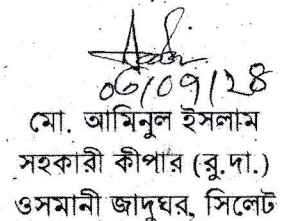 ০৬/০৭/২৪
মো. আমিনুল ইসলাম
সহকারী কীপার (রু.দা.)
ওসমানী জাদুঘর, সিলেট